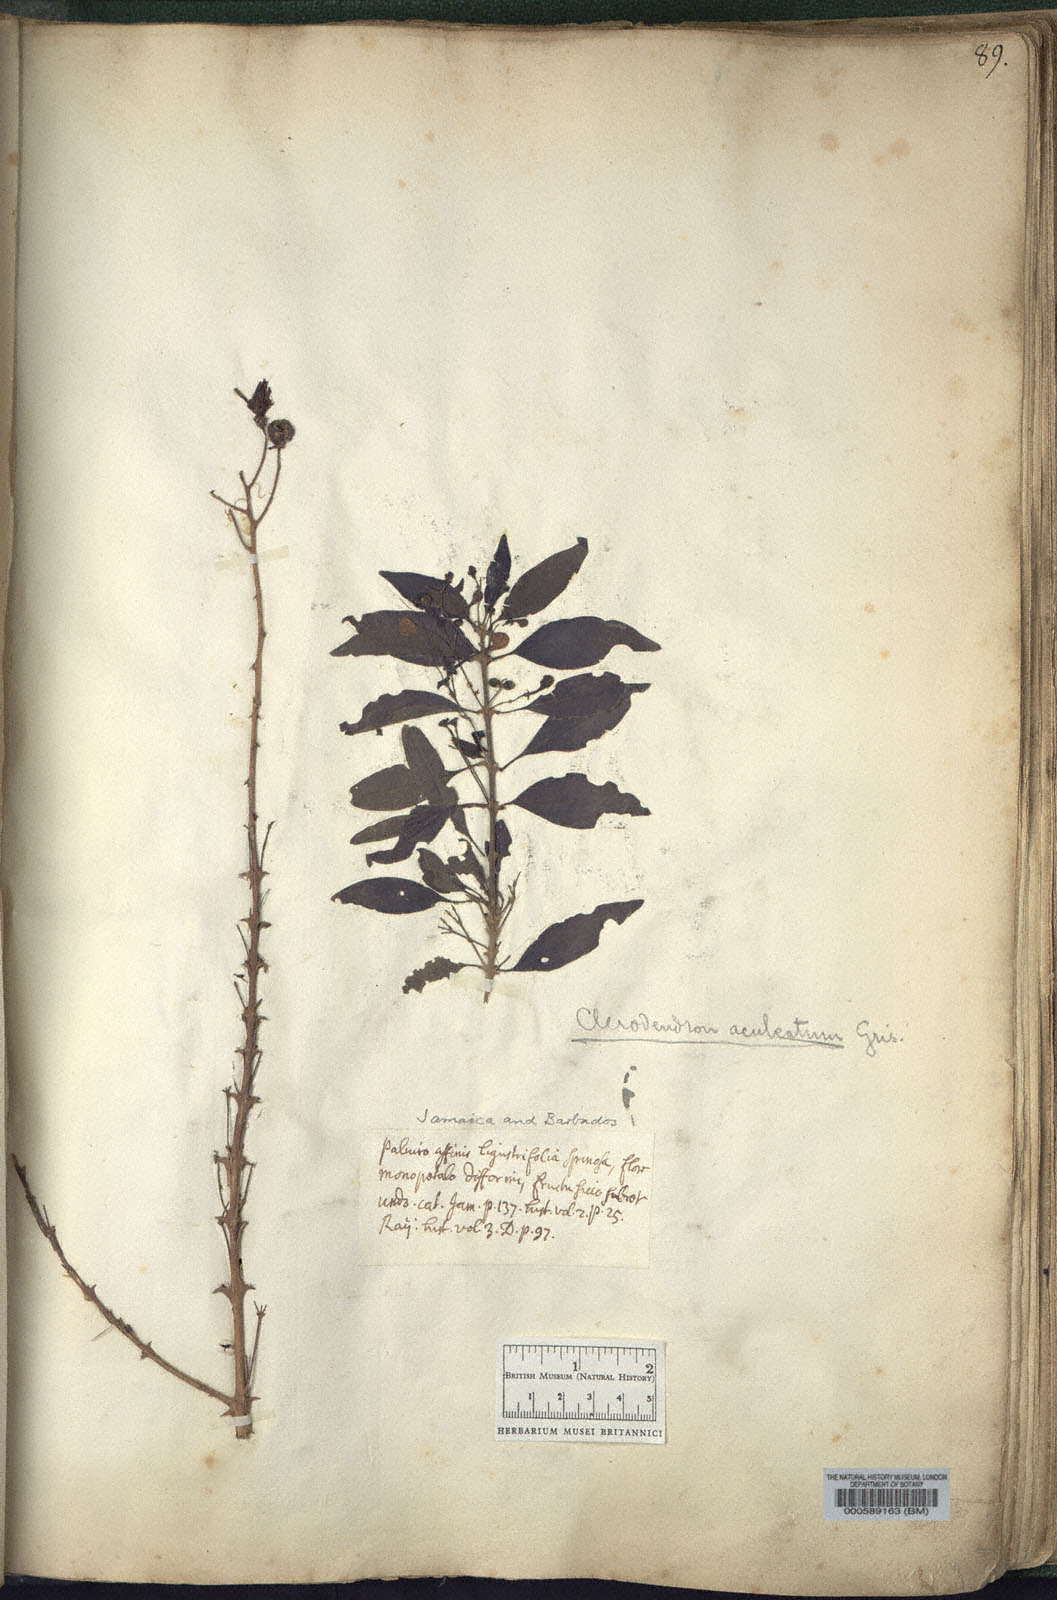 89.
Clerodendron aculeatum Gris.
Jamaica and Barbados
Paliuro affinis ligustrifolia spinosa, flore
monopetalo difformi, fructu sicco subrot
undo. cat. Jam. p. 137. hist. vol. 2. p. 25.
Raij. hist. vol. 3. D. p. 97.
1 2
British Museum (Natural History)
1 2 3 4 5
HERBARIUM MUSEI BRITANNICI
THE NATURAL HISTORY MUSEUM, LONDON
DEPARTMENT OF BOTANY
000589163 (BM)